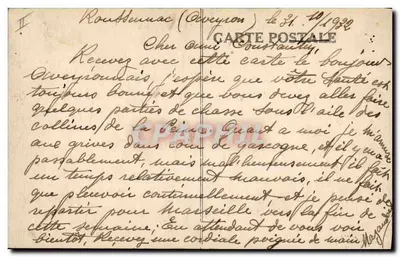 II
Roussennac (Aveyron) le 31 10/1932
CARTE POSTALE
Cher ami Constantin,
Recevez avec cette carte le bonjour
Aveyronnais, j'espère que votre santé est
toujours bonne et que vous devez aller faire
quelques parties de chasse sous l'aile des
collines de la Quant a moi je m'amuse
aux grives dans de gascogne, et il y en a
passablement, mais malheureusement il fait
un temps relativement mauvais, il ne fait
que pleuvoir continuellement et je pense
repartir pour Marseille vers la fin de
cette semaine. En attendant de vous voir
bientôt, Recevez une cordiale poignée de main